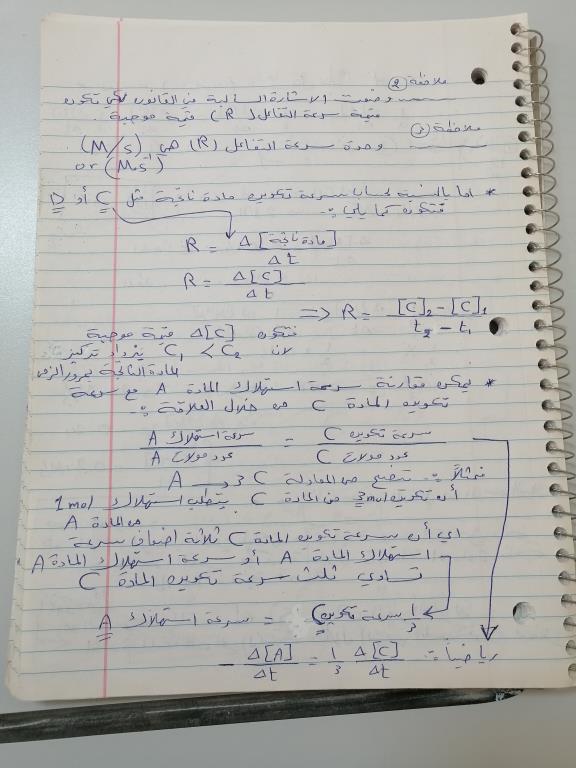 ملاحظة ②
وضعت الاشارة السالبة في القانون لكي تكون
قيمة سرعة التفاعل (R) قيمة موجبة.
ملاحظة ③
وحدة سرعة التفاعل (R) هي (M/s)
or (M.s⁻¹)
* اما بالنسبة لحساب سرعة تكوين مادة ناتجة مثل C أو D
فتكون كما يلي :-
R = Δ[مادة ناتجة] / Δt
R = Δ[C] / Δt
=> R = [C]₂ - [C]₁ / t₂ - t₁
فتكون Δ[C] قيمة موجبة
لان C₁ < C₂ يزداد تركيز
المادة الناتجة بمرور الزمن
* يمكن مقارنة سرعة استهلاك المادة A مع سرعة
تكوين المادة C من خلال العلاقة :-
سرعة استهلاك A / عدد مولات A = سرعة تكوين C / عدد مولات C
فمثلاً :- تتضح من المعادلة A → 3C
أن تكوين 3mol من المادة C يتطلب استهلاك 1mol
من المادة A
اي أن سرعة تكوين المادة C ثلاثة اضعاف سرعة
استهلاك المادة A أو سرعة استهلاك المادة A
تساوي ثلث سرعة تكوين المادة C
سرعة استهلاك A = 1/3 سرعة تكوين C
رياضياً :-
- Δ[A] / Δt = 1/3 Δ[C] / Δt